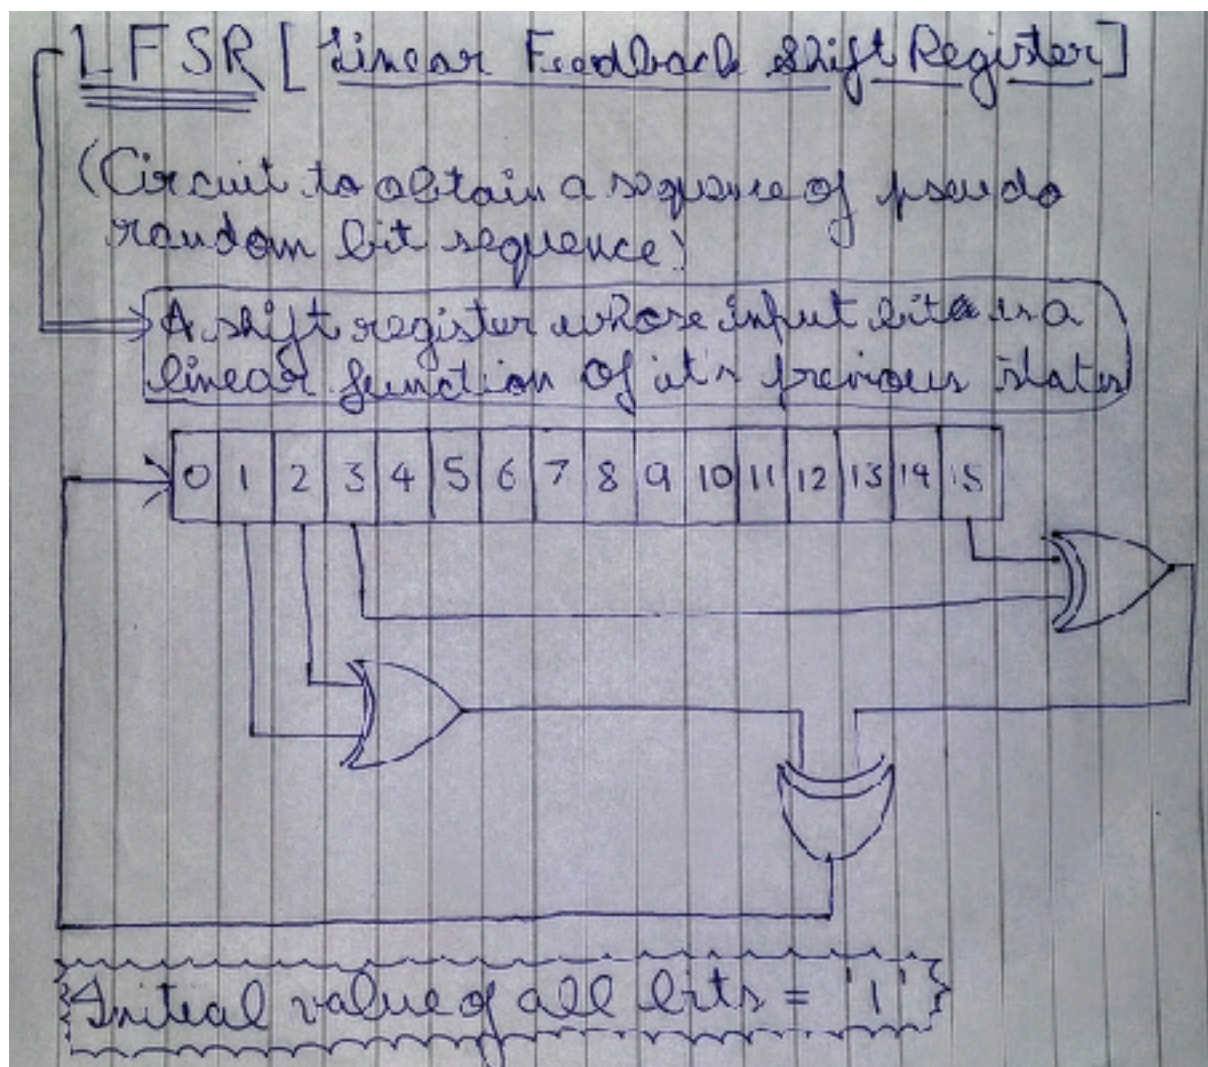 LFSR [Linear Feedback Shift Register]
(Circuit to obtain a sequence of pseudo
random bit sequence)
A shift register whose input bit is a
linear function of it's previous states
0 1 2 3 4 5 6 7 8 9 10 11 12 13 14 15
Initial value of all bits = '1'